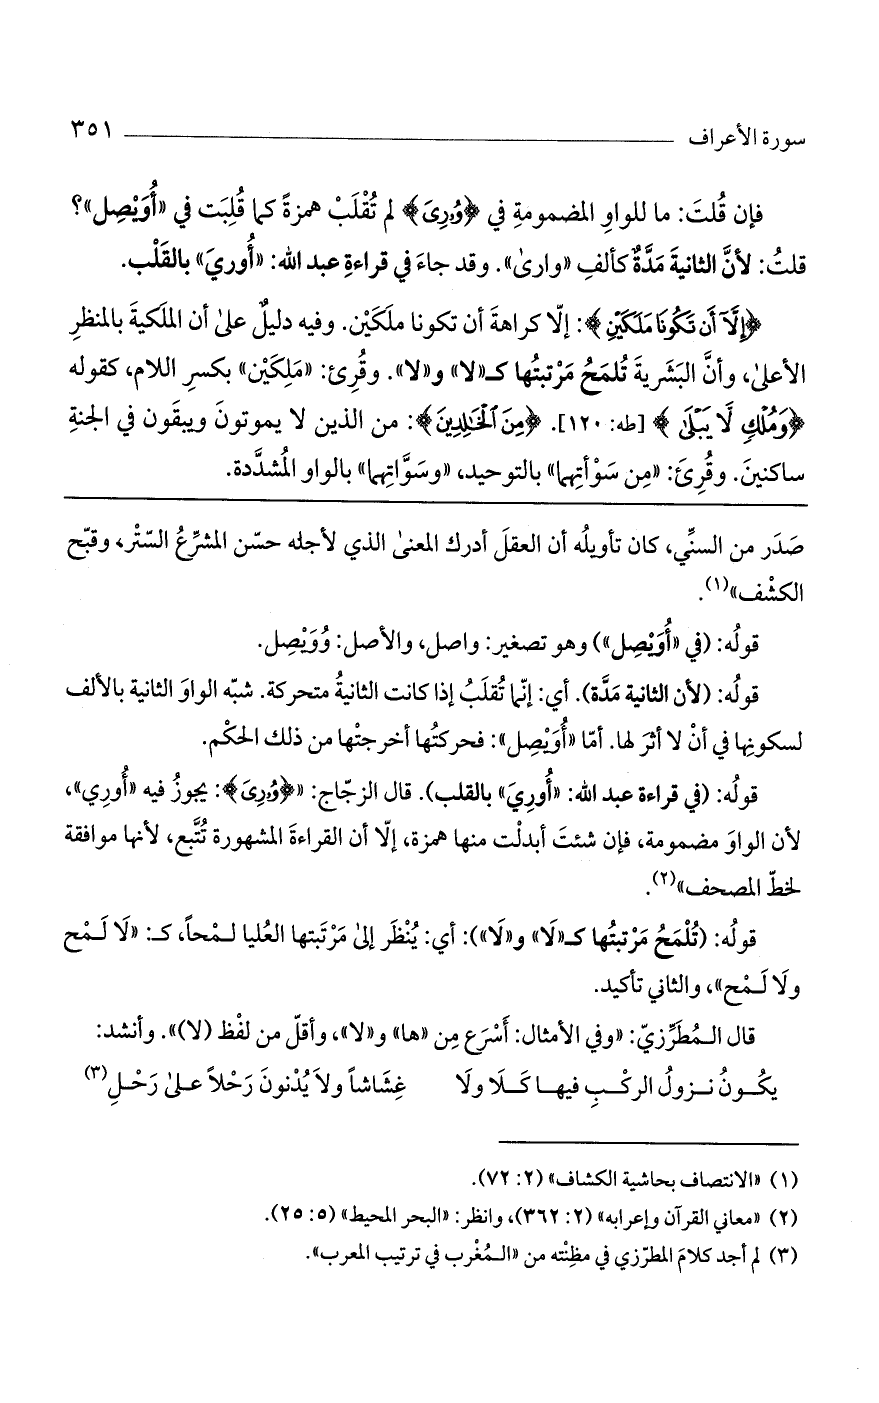 سورة الأعراف ٣٥١
فإن قُلتَ: ما للواوِ المضمومةِ في ﴿وُۥرِىَ﴾ لم تُقْلَبْ همزةً كما قُلِبَت في «أُوَيْصِل»؟
قلتُ: لأنَّ الثانيةَ مَدَّةٌ كألفِ «وارىٰ». وقد جاءَ في قراءةِ عبد الله: «أُورِيَ» بالقَلْب.
﴿إِلَّآ أَن تَكُونَا مَلَكَيْنِ﴾: إلّا كراهةَ أن تكونا ملَكَيْن. وفيه دليلٌ علىٰ أن الملَكيةَ بالمنظرِ
الأعلىٰ، وأنَّ البَشَريةَ تُلمَحُ مَرْتبتُها كـ«لا» و«لا». وقُرِئ: «مَلِكَيْن» بكسرِ اللام، كقوله
﴿وَمُلْكٍ لَّا يَبْلَىٰ﴾ [طه: ١٢٠]. ﴿مِنَ ٱلْخَٰلِدِينَ﴾: من الذين لا يموتونَ ويبقَون في الجنةِ
ساكنينَ. وقُرِئَ: «مِن سَوْأَتِهما» بالتوحيد، «وسَوَّاتِهما» بالواو المُشدَّدة.
صَدَر من السنِّي، كان تأويلُه أن العقلَ أدرك المعنىٰ الذي لأجله حسّن المشرِّعُ السّتْر، وقبّح
الكشْف»(١).
قولُه: (في «أُوَيْصِل») وهو تصغير: واصل، والأصل: وُوَيْصِل.
قولُه: (لأن الثانية مَدَّة). أي: إنّما تُقلَبُ إذا كانت الثانيةُ متحركة. شبّه الواوَ الثانية بالألف
لسكونِها في أنْ لا أثرَ لها. أمّا «أُوَيْصِل»: فحركتُها أخرجتْها من ذلك الحكْم.
قولُه: (في قراءة عبد الله: «أُورِيَ» بالقلب). قال الزجّاج: «﴿وُۥرِىَ﴾: يجوزُ فيه «أُورِي»،
لأن الواوَ مضمومة، فإن شئتَ أبدلْت منها همزة، إلّا أن القراءةَ المشهورة تُتَّبع، لأنها موافقة
لخطّ المصحف»(٢).
قولُه: (تُلْمَحُ مَرْتبتُها كـ«لَا» و«لَا»): أي: يُنْظَر إلىٰ مَرْتَبتها العُليا لـمْحاً، كـ: «لَا لَـمْح
ولَا لَـمْح»، والثاني تأكيد.
قال الـمُطَرِّزيّ: «وفي الأمثال: أَسْرَع مِن «ها» و«لا»، وأقلّ من لفْظ (لا)». وأنشد:
يكُونُ نـزولُ الركْـبِ فيهـا كَـلَا ولَا غِشَاشاً ولاَ يُدْنونَ رَحْلاً علىٰ رَحْلِ(٣)
(١) «الانتصاف بحاشية الكشاف» (٢: ٧٢).
(٢) «معاني القرآن وإعرابه» (٢: ٣٦٢)، وانظر: «البحر المحيط» (٥: ٢٥).
(٣) لم أجد كلامَ المطرّزي في مظِنّته من «الـمُغْرب في ترتيب المعرب».